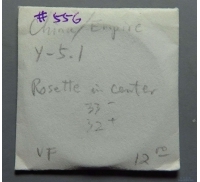 #556
China/Empire
Y-5.1
Rosette in center
33-
32+
VF
12.00